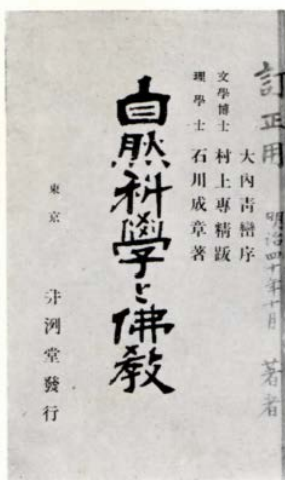 訂正用 明治四十年十月 著者
大內青巒序
文學博士 村上專精跋
理學士 石川成章著
自然科學と佛教
東京 井洌堂發行